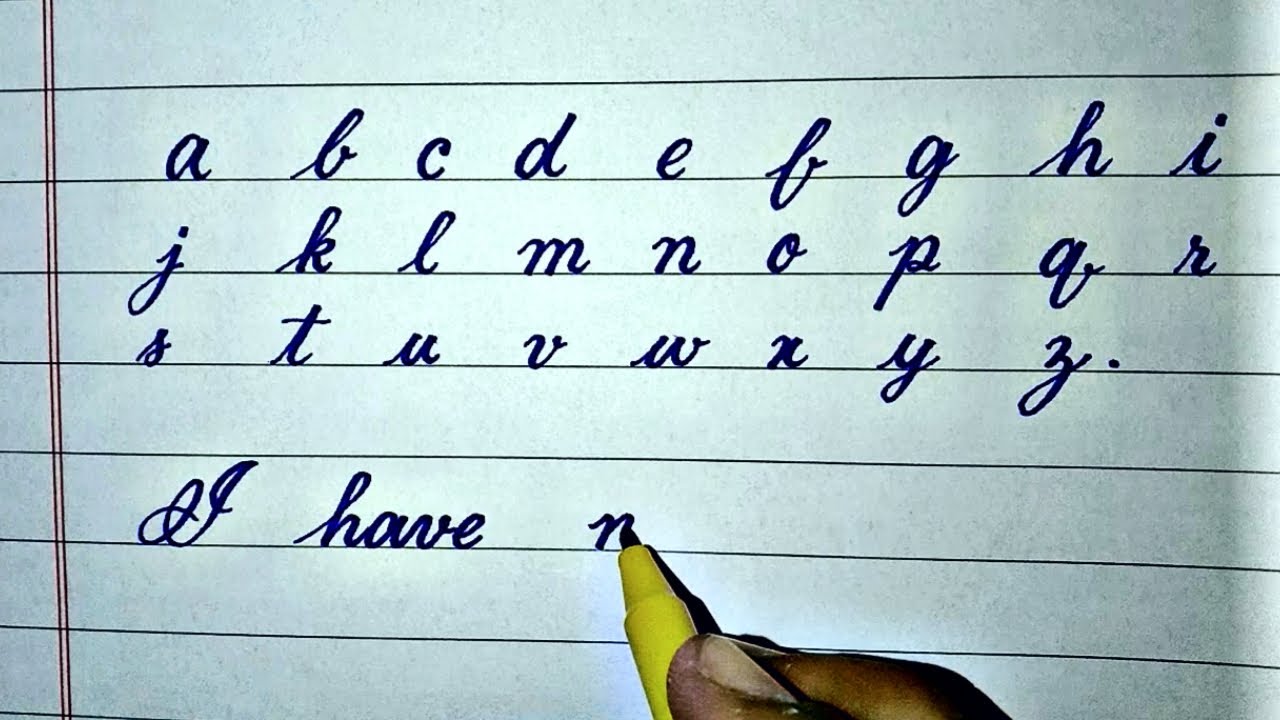 a b c d e f g h i
j k l m n o p q r
s t u v w x y z.
I have